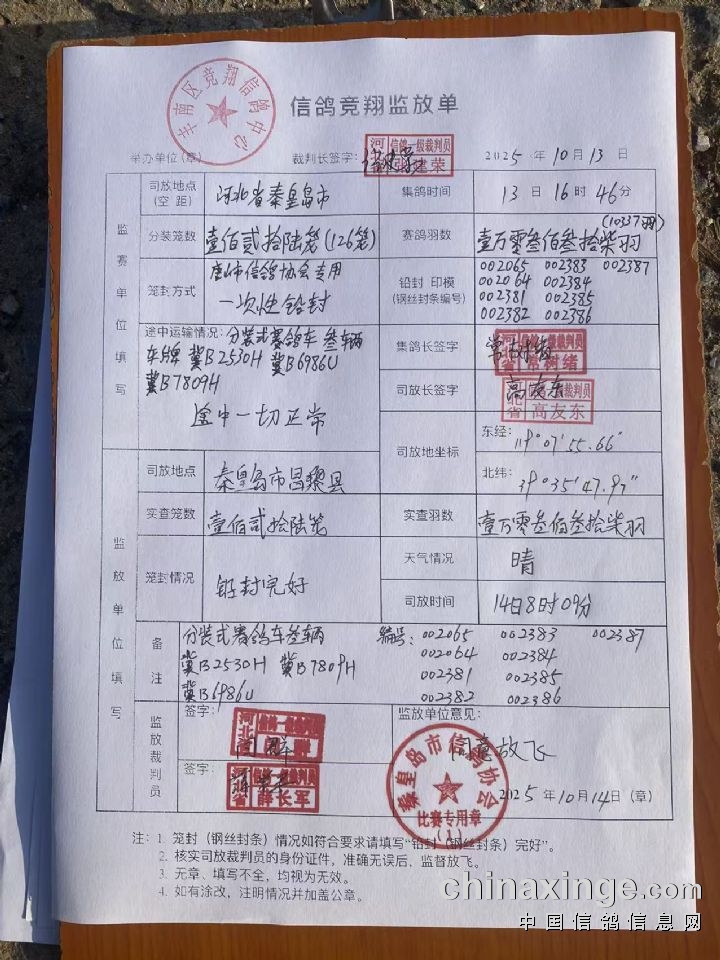 丰南区竞翔信鸽中心
信鸽竞翔监放单
举办单位(章) 裁判长签字: 河 信鸽一级裁判员 建荣 2025 年 10 月 13 日
监赛单位填写
司放地点(空距) 河北省秦皇岛市 集鸽时间 13 日 16 时 46 分
分装笼数 壹佰贰拾陆笼(126笼) 赛鸽羽数 壹万零叁佰叁拾柒羽 (10337羽)
笼封方式 唐山市信鸽协会专用 一次性铅封 铅封 印模(钢丝封条编号)
002065 002383 002387
002064 002384
002381 002385
002382 002386
途中运输情况: 分装式赛鸽车 叁辆
车牌 冀B2530H 冀B6986U
冀B7809H
途中一切正常
集鸽长签字 河北省 信鸽一级裁判员 常树绪
司放长签字 高友东 河北省 裁判员 高友东
司放地坐标 东经: 119°07'55.66"
北纬: 39°35'47.97"
监放单位填写
司放地点 秦皇岛市昌黎县
实查笼数 壹佰贰拾陆笼 实查羽数 壹万零叁佰叁拾柒羽
笼封情况 铅封完好 天气情况 晴
司放时间 14日8时09分
备注 分装式赛鸽车叁辆 编号: 002065 002383 002387
冀B2530H 冀B7809H 002064 002384
冀B6986U 002381 002385
002382 002386
监放裁判员
签字: 河北 信鸽一级裁判员
签字: 河北省 信鸽一级裁判员 薛长军
监放单位意见:
同意放飞
秦皇岛市信鸽协会 比赛专用章 (1)
2025 年 10 月 14 日 (章)
注: 1. 笼封(钢丝封条)情况如符合要求请填写“铅封(钢丝封条)完好”。
2. 核实司放裁判员的身份证件,准确无误后,监督放飞。
3. 无章、填写不全,均视为无效。
4. 如有涂改,注明情况并加盖公章。
chinaxinge.com
中国信鸽信息网